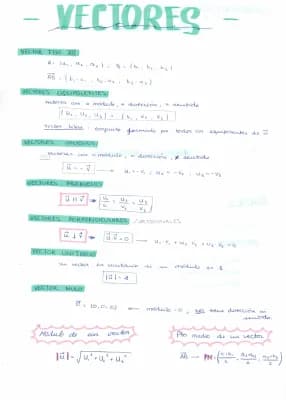 - VECTORES -
VECTOR FIJO AB
A = (a₁, a₂, a₃) ; B = (b₁, b₂, b₃)
AB = (b₁-a₁, b₂-a₂, b₃-a₃)
VECTORES EQUIPOLENTES
módulo, = dirección, = sentido
(u₁, u₂, u₃) = (v₁, v₂, v₃)
vector libre: conjunto formado por todos los equipolentes de
VECTORES
vectores con = módulo, = dirección, ≠ sentido
u⃗ = -v⃗ → u₁ = -v₁ ; u₂ = -v₂ ; u₃ = -v₃
VECTORES PARALELOS
u⃗ || v⃗ → u₁/v₁ = u₂/v₂ = u₃/v₃
VECTORES PERPENDICULARES
u⃗ ⊥ v⃗ → u⃗·v⃗ = 0 → u₁·v₁ + u₂·v₂ + u₃·v₃
VECTOR UNITARIO
un vector es unitario si su módulo es 1
|u⃗| = 1
VECTOR NULO
(0, 0, 0) módulo = 0, NO tiene dirección ni sentido
Módulo de un vector
|u⃗| = √u₁² + u₂² + u₃²
Pto medio de un vector
AB → PM = (a₁+b₁/2, a₂+b₂/2, a₃+b₃/2)